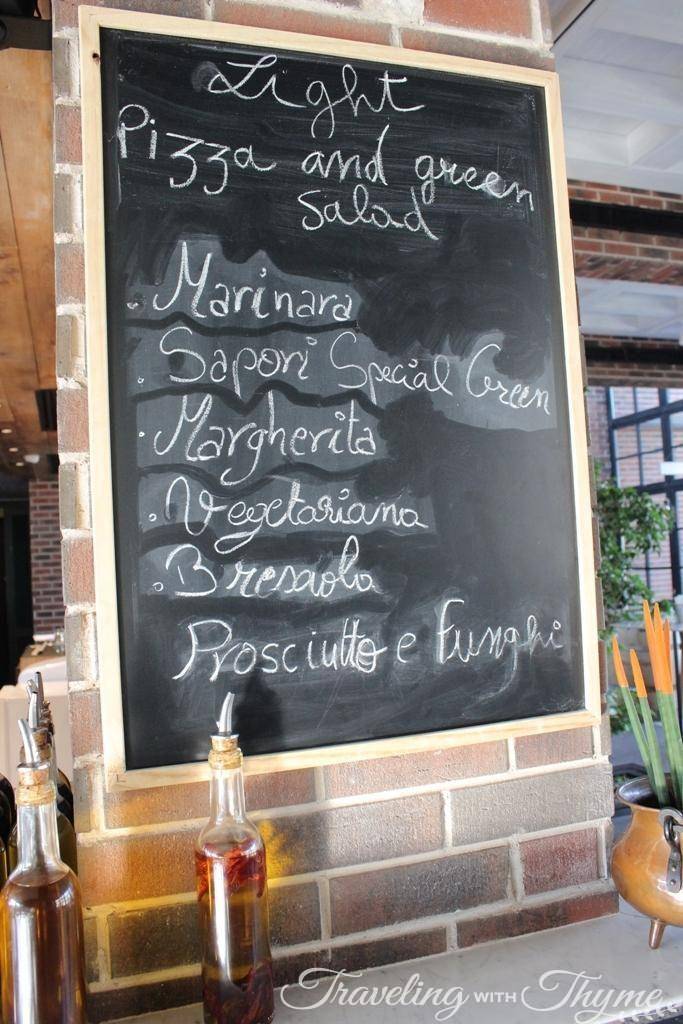 Light
Pizza and green
salad
. Marinara
. Sapori Special Green
. Margherita
. Vegetariana
. Bresaola
Prosciutto e Funghi
Traveling with Thyme